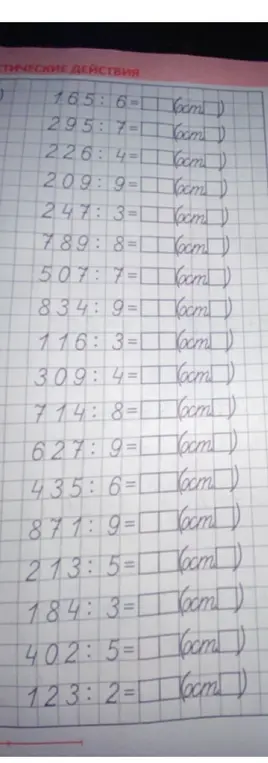 ТИЧЕСКИЕ ДЕЙСТВИЯ
165: 6= (ост )
295: 7= (ост )
226: 4= (ост )
209: 9= (ост )
247: 3= (ост )
789: 8= (ост )
507: 7= (ост )
834: 9= (ост )
116: 3= (ост )
309: 4= (ост )
714: 8= (ост )
627: 9= (ост )
435: 6= (ост )
871: 9= (ост )
213: 5= (ост )
184: 3= (ост )
402: 5= (ост )
123: 2= (ост )